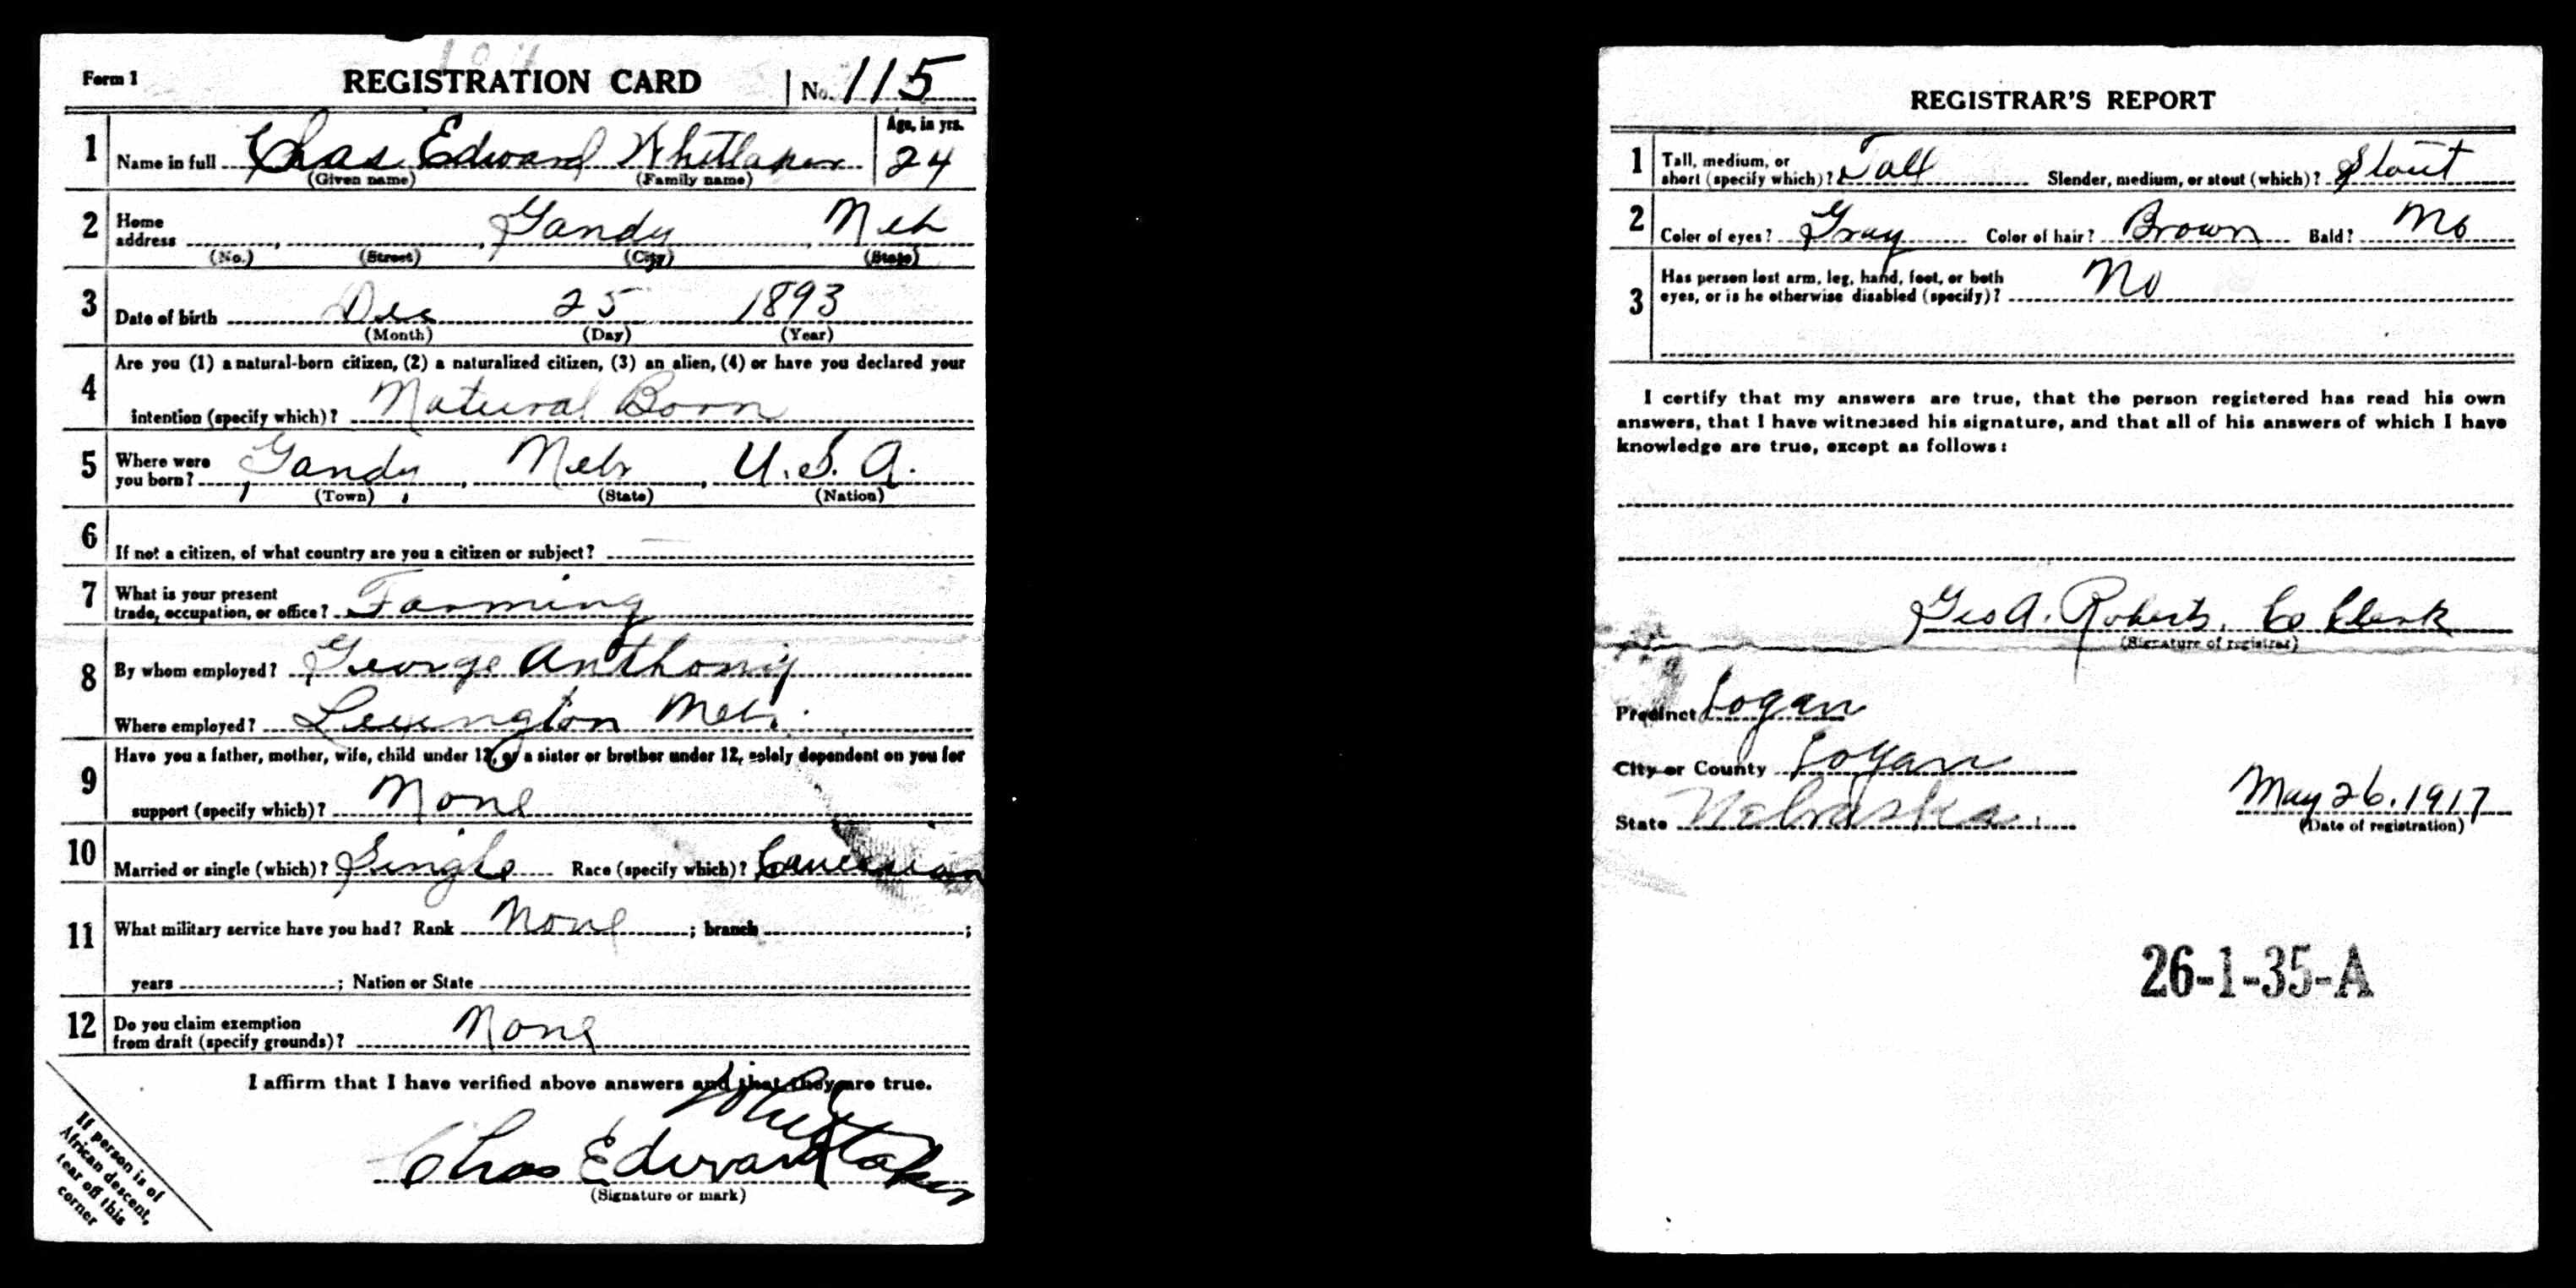 Form 1 REGISTRATION CARD No. 115
1 Name in full Chas Edward Whittaker Age, in yrs. 24
(Given name) (Family name)
2 Home address Gandy, Neb
(No.) (Street) (City) (State)
3 Date of birth Dec 25 1893
(Month) (Day) (Year)
4 Are you (1) a natural-born citizen, (2) a naturalized citizen, (3) an alien, (4) or have you declared your
intention (specify which)? Natural Born
5 Where were you born? Gandy, Nebr, U.S.A.
(Town) (State) (Nation)
6 If not a citizen, of what country are you a citizen or subject? —
7 What is your present
trade, occupation, or office? Farming
8 By whom employed? George Anthony
Where employed? Lexington Neb.
9 Have you a father, mother, wife, child under 12, or a sister or brother under 12, solely dependent on you for
support (specify which)? None
10 Married or single (which)? Single Race (specify which)? Caucasian
11 What military service have you had? Rank None ; branch ;
years ; Nation or State
12 Do you claim exemption
from draft (specify grounds)? None
I affirm that I have verified above answers and that they are true.
Chas Edward Whittaker
(Signature or mark)
If person is of
African descent,
tear off this
corner
REGISTRAR'S REPORT
1 Tall, medium, or
short (specify which)? Tall Slender, medium, or stout (which)? Stout
2 Color of eyes? Gray Color of hair? Brown Bald? No
3 Has person lost arm, leg, hand, foot, or both
eyes, or is he otherwise disabled (specify)? No
I certify that my answers are true, that the person registered has read his own
answers, that I have witnessed his signature, and that all of his answers of which I have
knowledge are true, except as follows:
Geo A. Roberts, Co Clerk
(Signature of registrar)
Precinct Logan
City or County Logan
State Nebraska
May 26, 1917
(Date of registration)
26-1-35-A